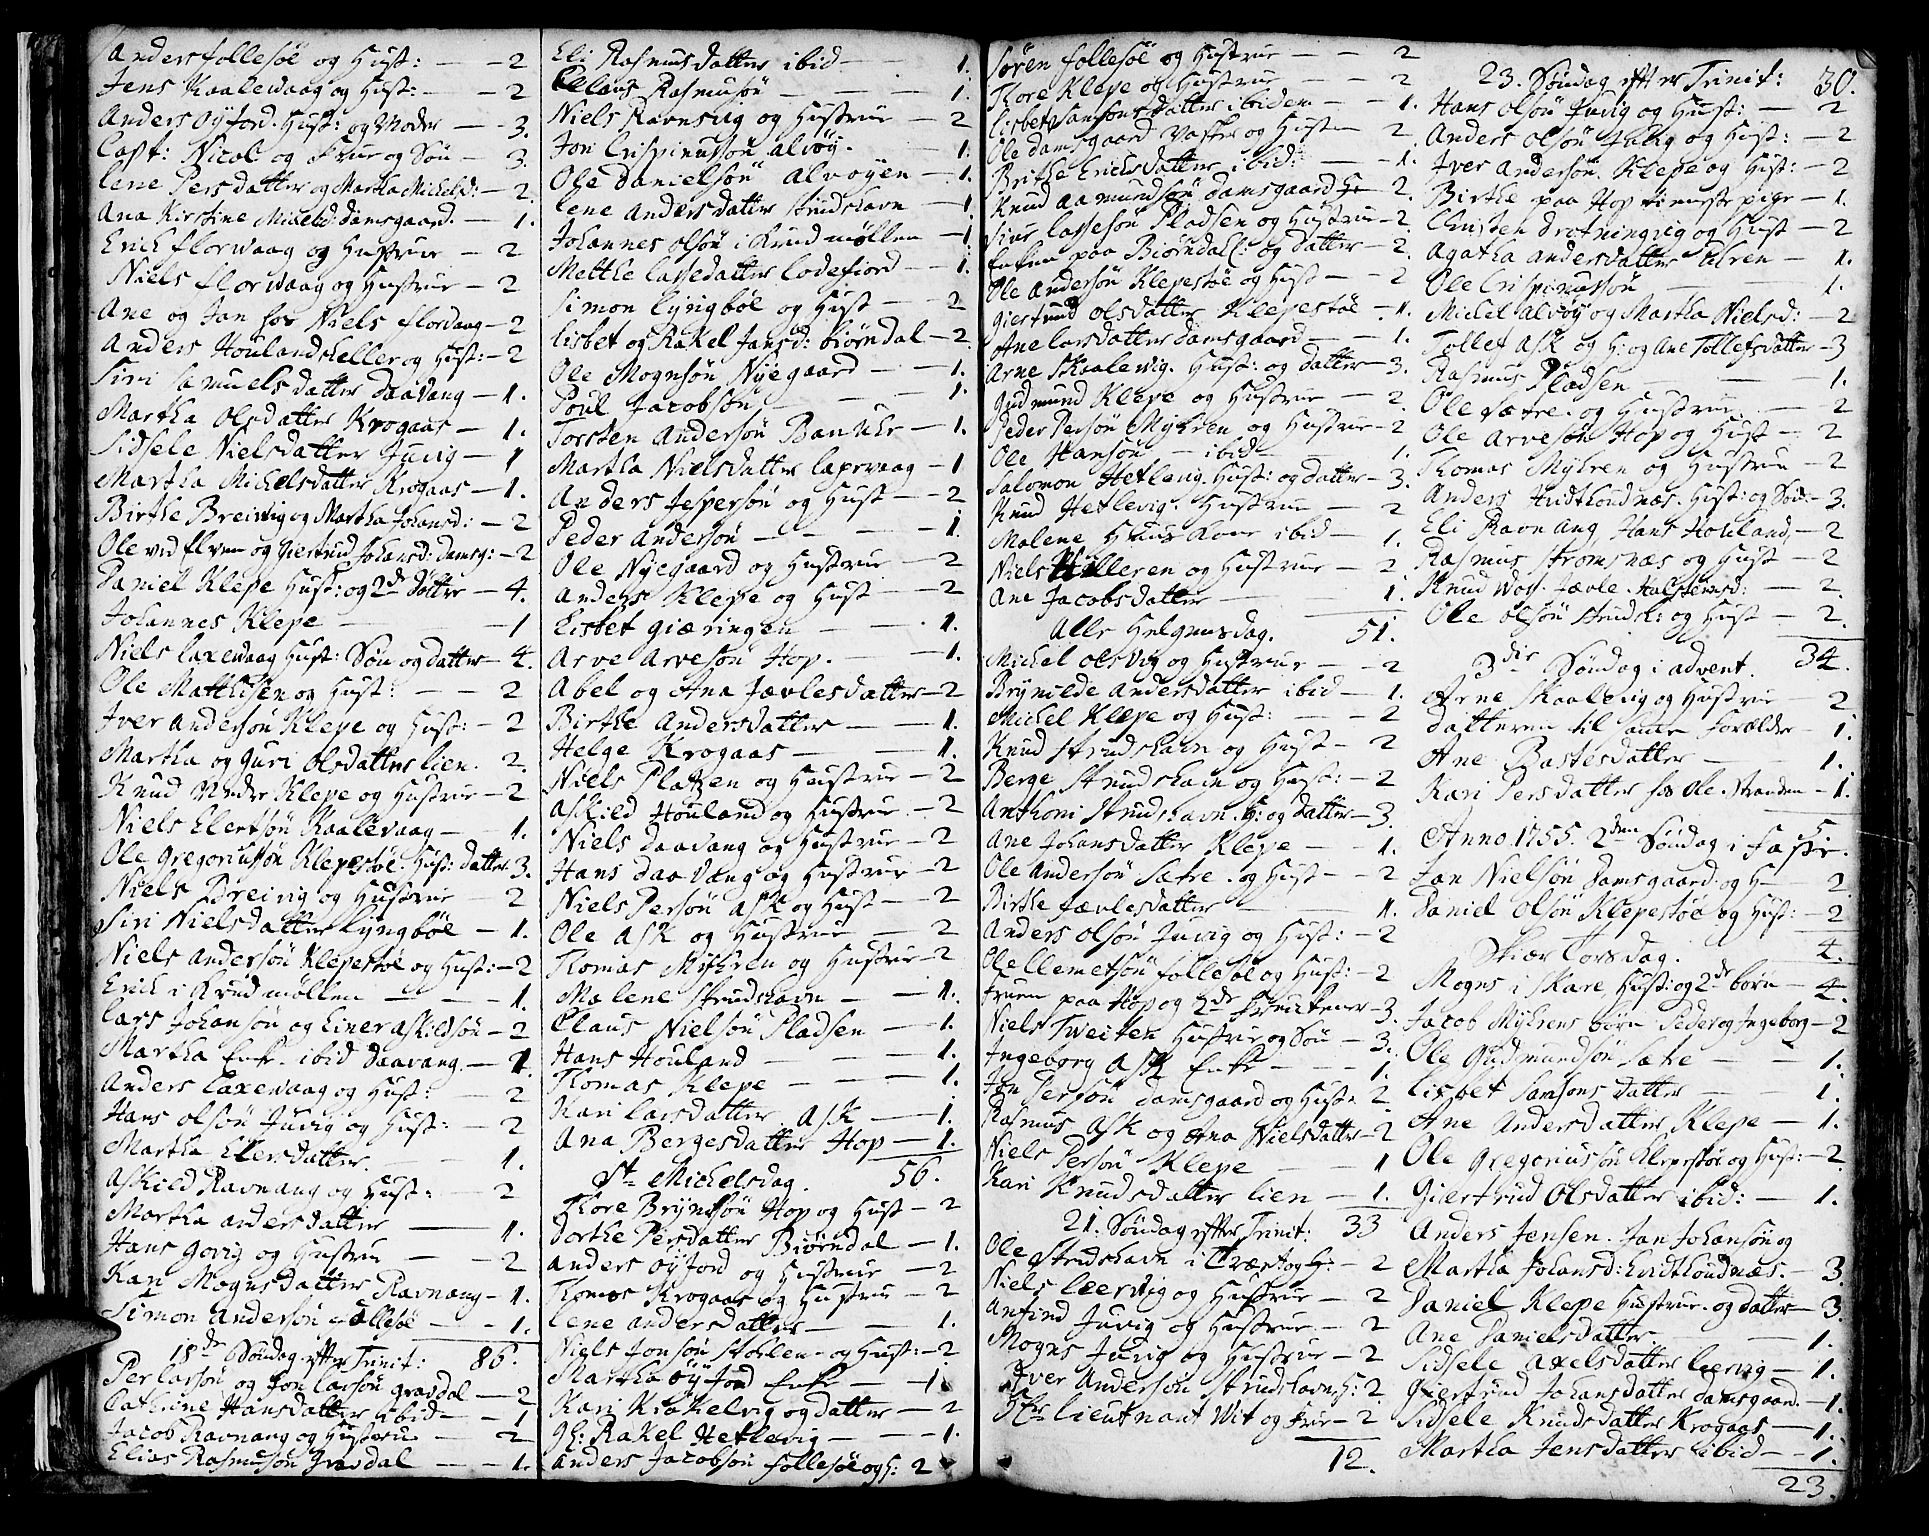 Anders follesöe og Hust: — 2
Jens Kaalewaag og Hust: — 2
Anders Øyjord. Hust: og Moder — 3.
Capt: Nicol og Frue og Sön — 3.
Lene Persdatter og Martha Michelsd: — 2.
Ana Kirstine Michelsd: Damsgaard. — 1.
Erich florwaag og Hustrue — 2
Niels florwaag og Hustrue — 2
Ane og Jan hos Niels flordaag — 2
Anders Houlandsheller og Hust: — 2
Siri Samuelsdatter Daavang — 1.
Martha Olsdatter Krogaas — 1.
Sidsele Nielsdatter Juvig — 1
Martha Michelsdatter Krogaas — 1.
Birthe Breivig og Martha Johansd: — 2
Ole ved Elven og Giertrud Johansd: Damsg: — 2
Daniel Klepe Hust: og 2de Döttre — 4.
Johannes Klepe — 1
Niels Laxewaag Hust: Sön og datter — 4.
Ole Matthisen og Hust: — 2
Iver Andersön Klepe og Hust: — 2
Martha og Guri Olsdatter Lien. 2.
Knud Nedre Klepe og Hustrue — 2
Niels Elertsön Kaalevaag — 1.
Ole Gregoriussön Klepestöe. Hust: datter 3.
Niels Breivig og Hustrue — 2
Siri Nielsdatter Lyngböe — 1.
Niels Andersön Klepestöe og Hust: — 2
Erich i Krudmöllen — 1.
Lars Johansön og Einer Askildsön — 2
Martha Enke ibid Daavang — 1.
Anders Laxewaag og Hust: — 2
Hans Olsön Juvig og Hust: — 2
Martha Elersdatter. — 1.
Askild Ravnang og Hust: — 2
Martha Andersdatter — 1.
Hans Govig og Hustrue — 2
Kari Mognsdatter Ravnang — 1.
Simon Andersön follesöe — 1.
18de Söndag efter Trinit: 86.
Per Larsön og Jon Larsön Gravdal — 2
Cathrine Hansdatter ibid — 1
Jacob Ravnang og Hustrue — 2
Elias Rasmusön Gravdal — 1.
Eli Rasmusdatter ibid — 1.
Claus Rasmusön — 1.
Niels Ravnsug og Hustrue — 2
Jon Crispinussön Alvöy. — 1.
Ole Danielsön Alvöyen — 1.
Lene Andersdatter Strudshavn — 1.
Johannes Olsön i Krudmöllen — 1.
Metthe Lassedatter Lodefiord — 1.
Simon Lyngböe og Hust — 2
Lisbet og Rakel Jansd: Biörndal — 2.
Ole Mognsön Nyegaard — 1.
Poul Jacobsön — 1.
Torsten Andersön — 1.
Martha Nielsdatter Laxevaag — 1
Anders Jespersön og Hust — 2
Peder Andersön — 1.
Ole Nyegaard og Hustrue — 2
Anders Klepe og Hust — 2
Lisbet Giæringen — 1.
Arve Arvesön Hop. — 1.
Abel og Ana Jævlesdatter — 2
Birthe Andersdatter — 1.
Helge Krogaas — 1.
Niels Platzen og Hustrue — 2
Askild Houland og Hustrue — 2
Niels Daavang og Hustrue — 2
Hans Daavang og Hustrue — 2
Niels Persön Ask og Hust — 2
Ole Ask og Hustrue — 2
Thomas Myhren og Hustrue — 2
Malene Strudshavn — 1.
Claus Nielsön Pladsen — 1.
Hans Houland — 1.
Thomas Klepe — 1.
Kari Larsdatter Ask — 1.
Ana Bergesdatter Hop — 1.
St. Michelsdag. 56.
Thore Brynildsön Hop og Hust — 2
Dorthe Persdatter Biörndal — 1.
Anders Øyjord og Hustrue — 2
Thomas Krogaas og Hustrue — 2
Lene Andersdatter — 1.
Niels Jonsön Stohlen og Hust: — 2
Martha Øyjord Enke — 1
Kari Kiökelvig og datter — 2
Gl: Rakel Hetlevig — 1.
Anders Jacobsön follesöe og H: 2
Sören follesöe og Hustrue — 2
Thore Klepe og Hustrue — 2
Lisbet Samsonsdatter ibidem — 1.
Ole Damsgaard og Hust — 2
Brithe Erichsdatter ibid: — 1.
Knud Aamundsön Damsgaard — 2.
Siur Lassesön Pladsen og Hustrue — 2.
Enken paa Biörndal: og datter — 2.
Ole Andersön Klepestöe og Hust — 2
Giertrud Olsdatter Klepestöe — 1.
Ane Larsdatter Damsgaard — 1.
Arne Skaalevig. Hust: og datter — 3.
Gudmund Klepe og Hustrue — 2.
Peder Persön Myhren og Hustrue — 2
Ole Hansön — ibid — 1.
Salomon Hetlevig Hust: og datter — 3.
Knud Hetlevig. Hustrue — 2
Malene ibid — 1.
Niels Hilleren og Hustrue — 2
Ane Jacobsdatter — 1.
Alle Helgensdag. 51.
Michel Olsvig og Hustrue — 2
Brynilde Andersdatter ibid — 1.
Michel Klepe og Hust: — 2
Knud Strudshavn og Hust — 2
Berge Strudshavn og Hust: — 2
Anthoni Strudshavn. H: og datter — 3.
Ane Johansdatter Klepe — 1.
Ole Andersön Sætre. og Hust — 2
Birthe Jævlesdatter — 1.
Anders Olsön Juvig og Hust: — 2
Ole Clemetsön follesöe og Hust: — 2
Fruen paa Hop og 2de — 3.
Niels Tweiten Hustrue og Sön — 3.
Ingeborg Ask Enke — 1.
Jon Persön Damsgaard og Hust: 2
Rasmus Ask og Ana Nielsdatter — 2
Niels Persön Klepe — 1
Kari Knudsdatter Lien — 1.
21. Söndag efter Trinit: 33
Ole Strudshavn i Træet og H: — 2
Niels Leervig og Hustrue — 2
Anfind Juvig og Hustrue — 2
Mogns Juvig og Hustrue — 2
Iver Andersön Strudshavn H: 2
Hr Lieutnant Wit og Frue — 2
12.
23. Söndag efter Trinit: 30.
Hans Olsön Juvig og Hust: — 2
Anders Olsön Juvig og Hust: — 2
Iver Andersön. Klepe og Hust: — 2
Birthe paa Hop tieneste pige — 1.
Christen Drotningvig og Hust — 2
Agatha Andersdatter — 1.
Ole Crispinussön — 1.
Michel Alvöy og Martha Nielsd: — 2
Tollef Ask og H: og Ane Tollefsdatter — 3
Rasmus Pladsen — 1.
Ole Sætre. og Hustrue. — 2
Ole Arvesön Hop og Hust — 2
Thomas Myhren og Hustrue — 2
Anders Hust: og Sön — 3.
Eli Ravnang, Hans Houland, — 2
Rasmus Strömsnæs og Hust — 2
Knud Jævle Halsteensd: — 2.
Ole Olsön Strudsh: og Hust — 2.
3die Söndag i Advent. 34.
Arne Skaalevig og Hustrue 2
Datteren til samme Forældre — 1.
Ane Bastesdatter — 1.
Kari Persdatter hos Ole Stranden — 1.
5.
Anno 1755. 2den Söndag i Faste.
Jan Nielsön Damsgaard og H — 2
Daniel Olsön Klepestöe og Hust: — 2
Skiær Torsdag. 4.
Mogns i Skare, Hust: og 2de börn — 4.
Jacob Myhrens börn Peder og Ingeborg — 2
Ole Gudmundsön Sætre — 1.
Lisbet Samsonsdatter — 1.
Ane Andersdatter Klepe — 1.
Ole Gregoriussön Klepestöe og Hust: — 2.
Giertrud Olsdatter ibid: — 1.
Anders Jensen. Jan Johansön og
Martha Johansd: — 3.
Daniel Klepe Hustrue og datter — 3.
Ane Danielsdatter. — 1.
Sidsele Axelsdatter Leervig — 1.
Giertrud Johansdatter Damsgaard. — 1.
Sidsele Knudsdatter Krogaas — 1.
Martha Jensdatter ibid — 1.
23.